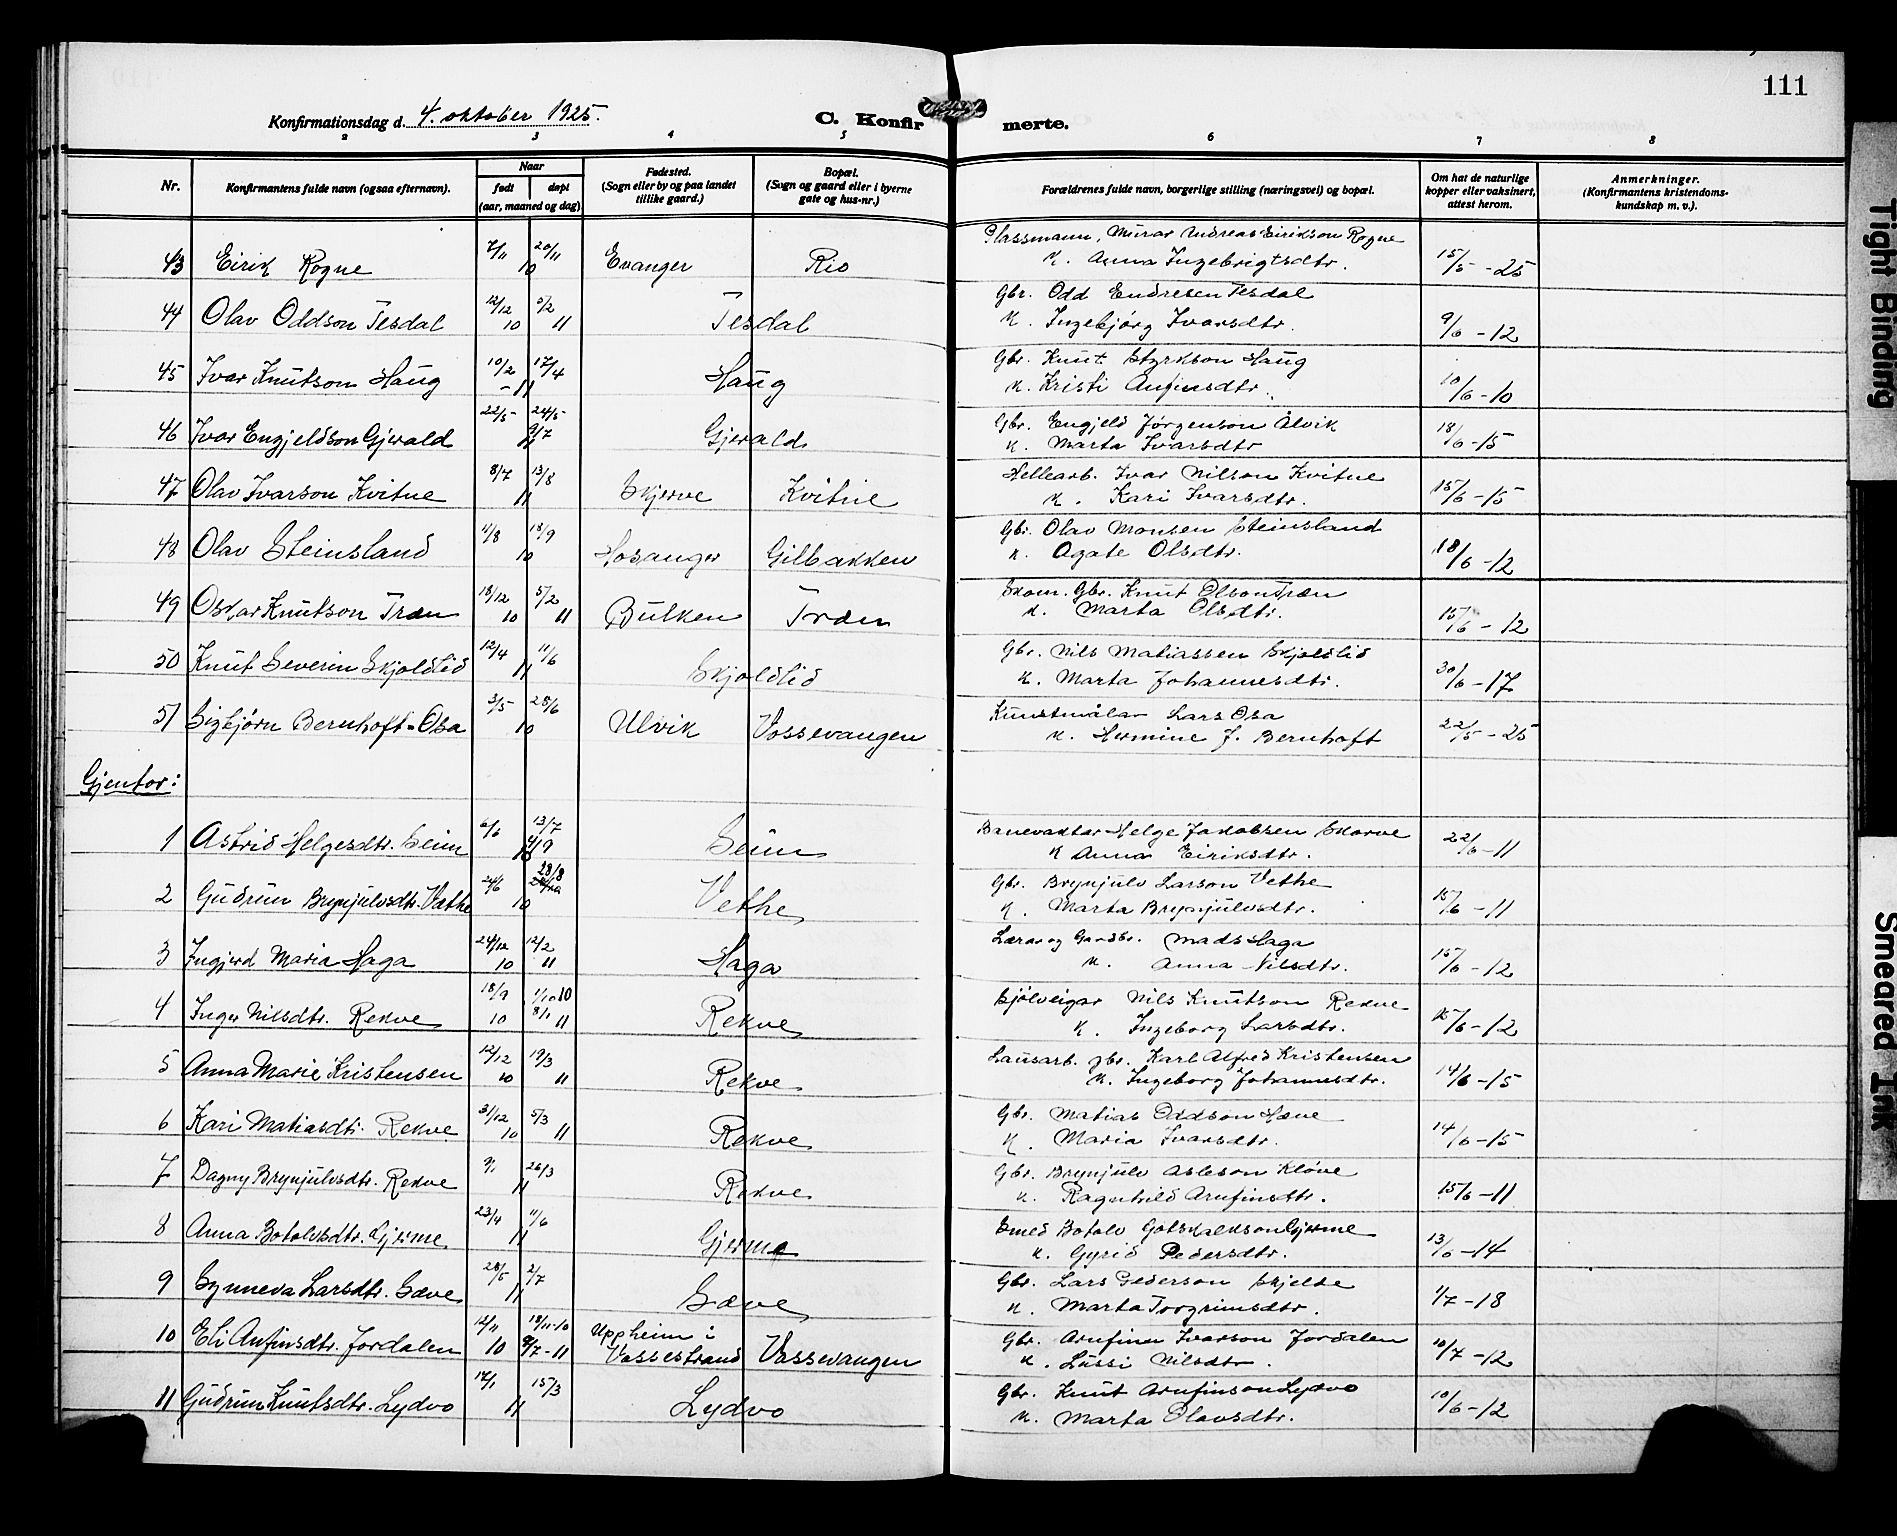 111
Konfirmationsdag d. 4. oktober 1925.
C. Konfirmerte.
2 3 4 5 6 7 8
Nr.
Konfirmantens fulde navn (ogsaa efternavn).
Naar
født døpt
(aar, maaned og dag)
Fødested.
(Sogn eller by og paa landet
tillike gaard.)
Bopæl.
(Sogn og gaard eller i byerne
gate og hus-nr.)
Forældrenes fulde navn, borgerlige stilling (næringsvei) og bopæl.
Om hat de naturlige
kopper eller vaksinert,
attest herom.
Anmerkninger.
(Konfirmantens kristendoms-
kundskap m. v.).
43 Eirik Rogne 7/11 20/11 10 Evanger Rio Plassmann, Murar Andreas Eirikson Rogne
K. Anna Ingebrigtsdtr. 15/5 - 25
44 Olav Oddson Tesdal 12/12 10 5/2 11 Tesdal Gbr. Odd Endresen Tesdal
K. Ingebjörg Ivarsdtr. 9/6 - 12
45 Ivar Knutson Haug 10/2 17/4 - 11 Haug Gbr. Knut Styrkson Haug
K. Kristi Anfinsdtr. 10/6 - 10
46 Ivar Engjeldson Gjerald 22/5 24/5 9/7 11 Gjerald Gbr. Engjeld Jørgenson Ålvik
K. Marta Ivarsdtr 18/6 - 15
47 Olav Ivarson Kvitne 8/7 13/8 11 Skjerve Kvitne Hellearb. Ivar Nilson Kvitne
K. Kari Ivarsdtr. 15/6 - 15
48 Olav Steinsland 4/8 18/9 10 Hosanger Gilbakken Gbr. Olav Monsen Steinsland
K. Agate Olsdtr. 18/6 - 12
49 Oskar Knutson Træn 18/12 10 5/2 11 Bulken Træn Skom. Gbr. Knut Olson Træn
K. Marta Olsdtr. 15/6 - 12
50 Knut Severin Skjoldlid 12/4 11/6 11 Skjoldlid Gbr. Nils Matiassen Skjoldlid
K. Marta Johannesdtr. 30/6 - 17
51 Sigbjørn Bernhoft-Osa 3/5 28/6 10 Ulvik Vossevangen Kunstmålar Lars Osa
K. Hermine J. Bernhoft 22/5 - 25
Gjentor:
1 Astrid Helgesdtr. Seim 6/6 13/7 4/9 10 Seim Banevaktar Helge Jakobsen Skorve
K Anna Eiriksdtr. 22/6 - 11
2 Gudrun Brynjulvsdtr. Vethe 24/6 28/8 10 Vethe Gbr. Brynjulv Larson Vethe
K. Marta Brynjulvsdtr. 15/6 - 11
3 Ingjerd Maria Haga 24/12 10 12/2 11 Haga Lærar og Gardbr. Mads Haga
K. Anna Nilsdtr. 15/6 - 12
4 Inger Nilsdtr. Rekve 18/9 10 1/10 10 8/1 11 Rekve Sjölveigar Nils Knutson Rekve
K. Ingeborg Larsdtr. 15/6 - 12
5 Anna Marie Kristensen 12/12 10 19/3 11 Rekve Lausarb. gbr. Karl Alfred Kristensen
K. Ingeborg Johannesdtr. 14/6 - 15
6 Kari Matiasdtr. Rekve 31/12 10 5/3 11 Rekve Gbr. Matias Oddson Hæve
K. Maria Ivarsdtr. 14/6 - 15
7 Dagny Brynjulvsdtr. Rekve 9/1 26/3 11 Rekve Gbr. Brynjulv Asleson Kløve
K. Ragnhild Arnfinsdtr. 15/6 - 11
8 Anna Botolvsdtr. Gjerme 23/4 11/6 11 Gjerme Smed Botolv Gotskalkson Gjerme
K. Gyrid Pedersdtr. 13/6 - 14
9 Synneva Larsdtr. Sæve 28/5 2/7 11 Sæve Gbr. Lars Pederson Skjelde
K. Marta Torgrimsdtr. 1/7 - 18
10 Eli Anfinsdtr. Jordalen 12/11 10 18/11-10 9/7-11 Uppheim i Vossestrand Vossevangen Gbr. Arnfinn Ivarson Jordalen
K. Lussi Nilsdtr. 10/7 - 12
11 Gudrun Knutsdtr. Lydvo 12/1 15/3 11 Lydvo Gbr. Knut Arnfinson Lydvo
K. Marta Olavsdtr. 10/6 - 12
Tight Binding
Smeared Ink